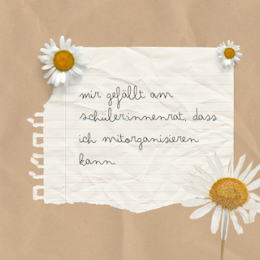 mir gefällt am
schülerinnenrat, dass
ich mitorganisieren
kann.